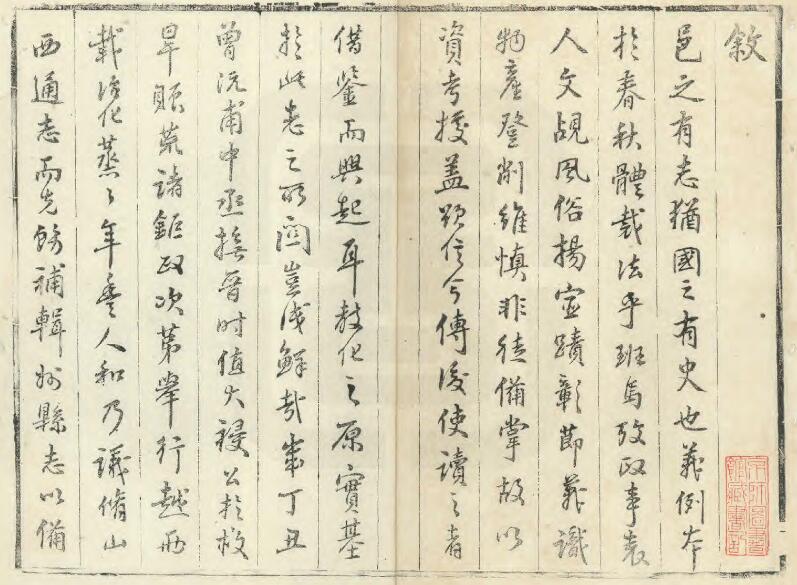 敘
邑之有志猶國之有史也義例本
於春秋體裁法乎班馬攷政事表
人文覘風俗揚宦蹟彰節義識
物產登削維慎非徒備掌故以
資考㨿蓋欲信今傳後使讀之者
借鑒而興起耳教化之原實基
於此志之所關豈淺鮮哉歲丁丑
曾沅甫中丞撫晉时值大祲公於救
旱賑荒諸鉅政次第舉行越兩
載治化蒸〻年豐人和乃議脩山
西通志而先飭補輯州縣志以備